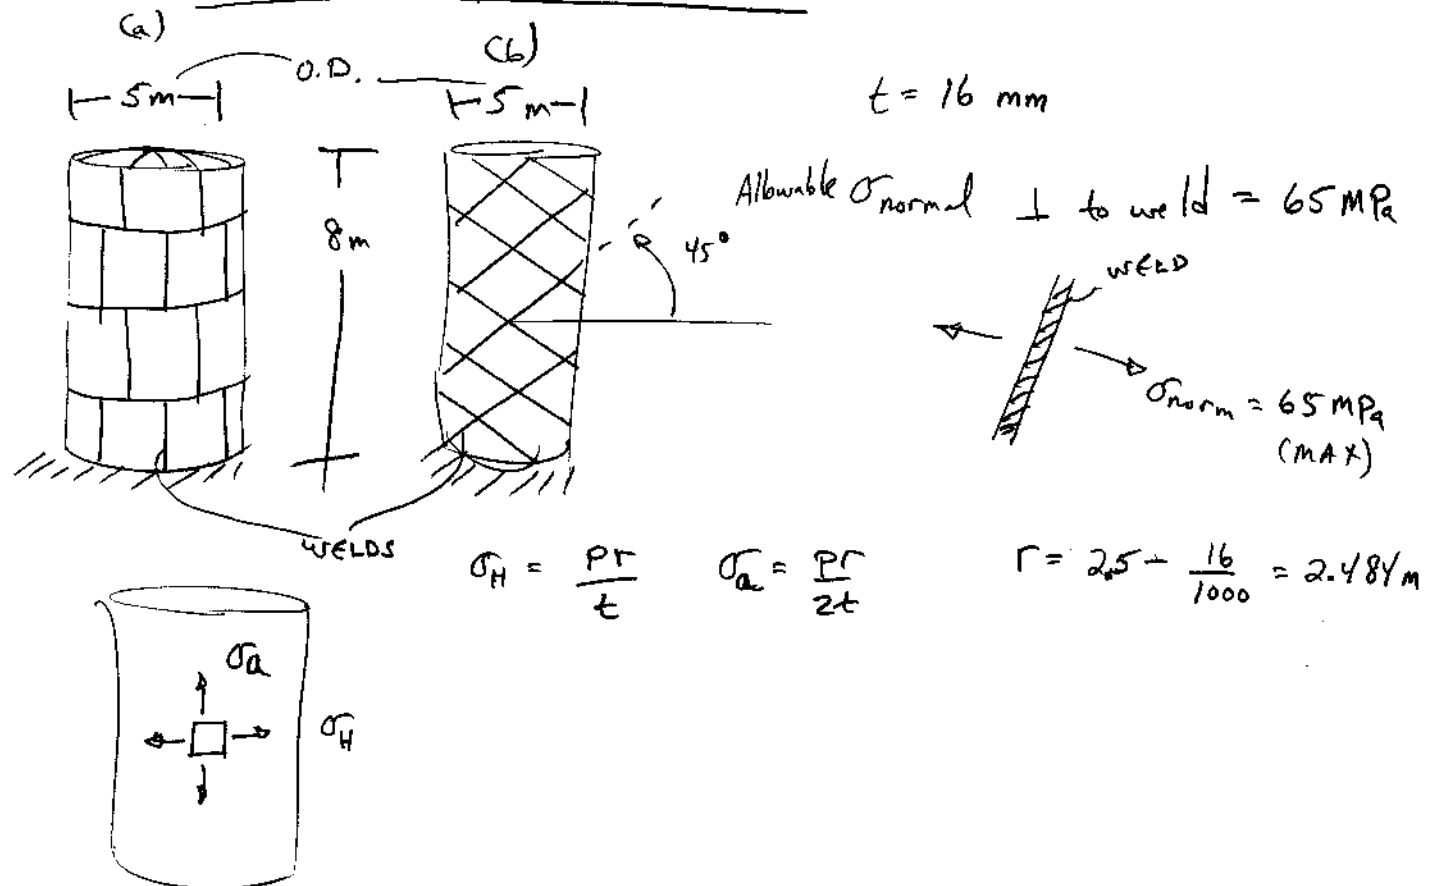 (a)
(b)
O.D.
5m
5m
t = 16 mm
8m
45°
Allowable σnormal ⊥ to weld = 65 MPa
WELD
σnorm = 65 MPa
(MAX)
WELDS
σH = Pr/t
σa = Pr/2t
r = 2.5 - 16/1000 = 2.484 m
σa
σH